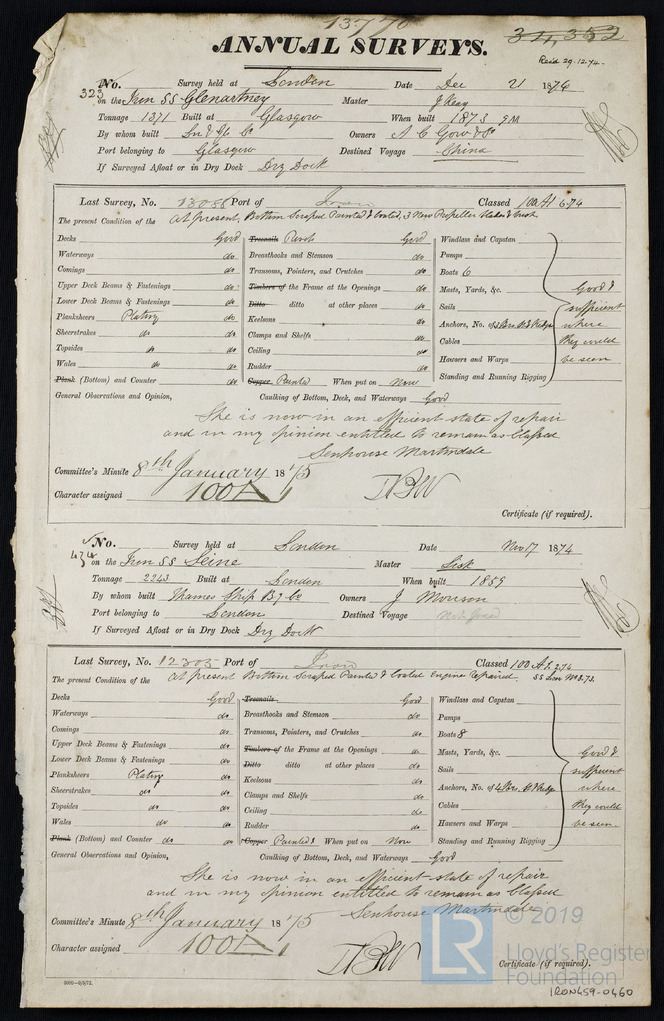 13770
34,352
ANNUAL SURVEYS.
Recd 29.12.74.
No. 323 Survey held at London Date Dec 21 1874
on the Iron SS Glenartney Master J Keay
Tonnage 1371 Built at Glasgow When built 1873 9M
By whom built Ln & Gl Co Owners A C Gow & Co
Port belonging to Glasgow Destined Voyage China
If Surveyed Afloat or in Dry Dock Dry Dock
Last Survey, No. 13086 Port of Iron Classed 100A1 6.74
The present Condition of the At present, Bottom Scraped Painted & Coated, 3 New Propeller Blades &
Decks Good Treenails Rivets Good Windlass and Capstan
Waterways do. Breasthooks and Stemson do. Pumps
Comings do. Transoms, Pointers, and Crutches do. Boats 6
Upper Deck Beams & Fastenings do. Timbers of the Frame at the Openings do. Masts, Yards, &c. Good &
Lower Deck Beams & Fastenings do. Ditto ditto at other places do. Sails sufficient
Planksheers Plating do. Keelsons do. Anchors, No. of where
Sheerstrakes do do. Clamps and Shelfs do. Cables they could
Topsides do do. Ceiling do. Hawsers and Warps be seen
Wales do do. Rudder do. Standing and Running Rigging
Plank (Bottom) and Counter do. Copper Painted When put on Now
General Observations and Opinion, Caulking of Bottom, Deck, and Waterways Good
She is now in an efficient state of repair
and in my opinion entitled to remain as Classed
Senhouse Martindale
Committee's Minute 8th January 1875
Character assigned 100A1
Certificate (if required).
No. 434 Survey held at London Date Nov 17 1874
on the Iron SS Seine Master Lisk
Tonnage 2243 Built at London When built 1859
By whom built Thames Ship Bg Co Owners J Morrison
Port belonging to London Destined Voyage Not fixed
If Surveyed Afloat or in Dry Dock Dry Dock
Last Survey, No. 12305 Port of Iron Classed 100 A1. 2.74
The present Condition of the At present Bottom Scraped Painted & Coated Engine Repaired. SS Lon No 3.73.
Decks Good Treenails Good Windlass and Capstan
Waterways do. Breasthooks and Stemson do. Pumps
Comings do Transoms, Pointers, and Crutches do. Boats 8
Upper Deck Beams & Fastenings do. Timbers of the Frame at the Openings do. Masts, Yards, &c. Good &
Lower Deck Beams & Fastenings do. Ditto ditto at other places do. Sails sufficient
Planksheers Plating do. Keelsons do. Anchors, No. of where
Sheerstrakes do do. Clamps and Shelfs do Cables they could
Topsides do do. Ceiling do Hawsers and Warps be seen
Wales do do. Rudder do Standing and Running Rigging
Plank (Bottom) and Counter do do Copper Painted When put on Now
General Observations and Opinion, Caulking of Bottom, Deck, and Waterways Good
She is now in an efficient state of repair
and in my opinion entitled to remain as Classed
Senhouse Martindale
Committee's Minute 8th January 1875
Character assigned 100A1
Certificate (if required).
© 2019
LR
Lloyd's Register
Foundation
IRON459-0460